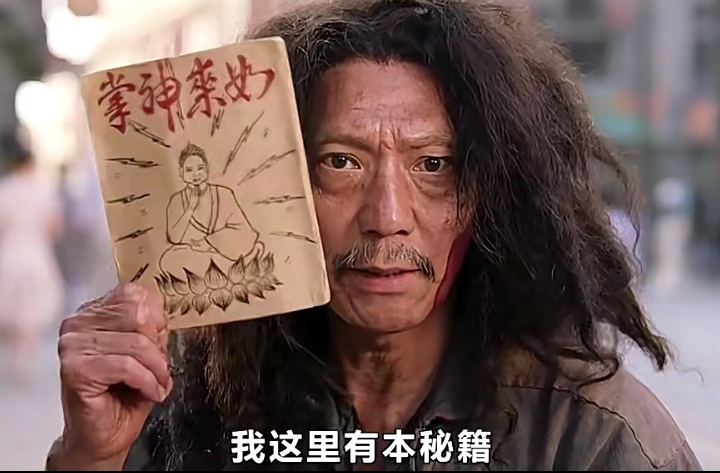 如來神掌
我这里有本秘籍